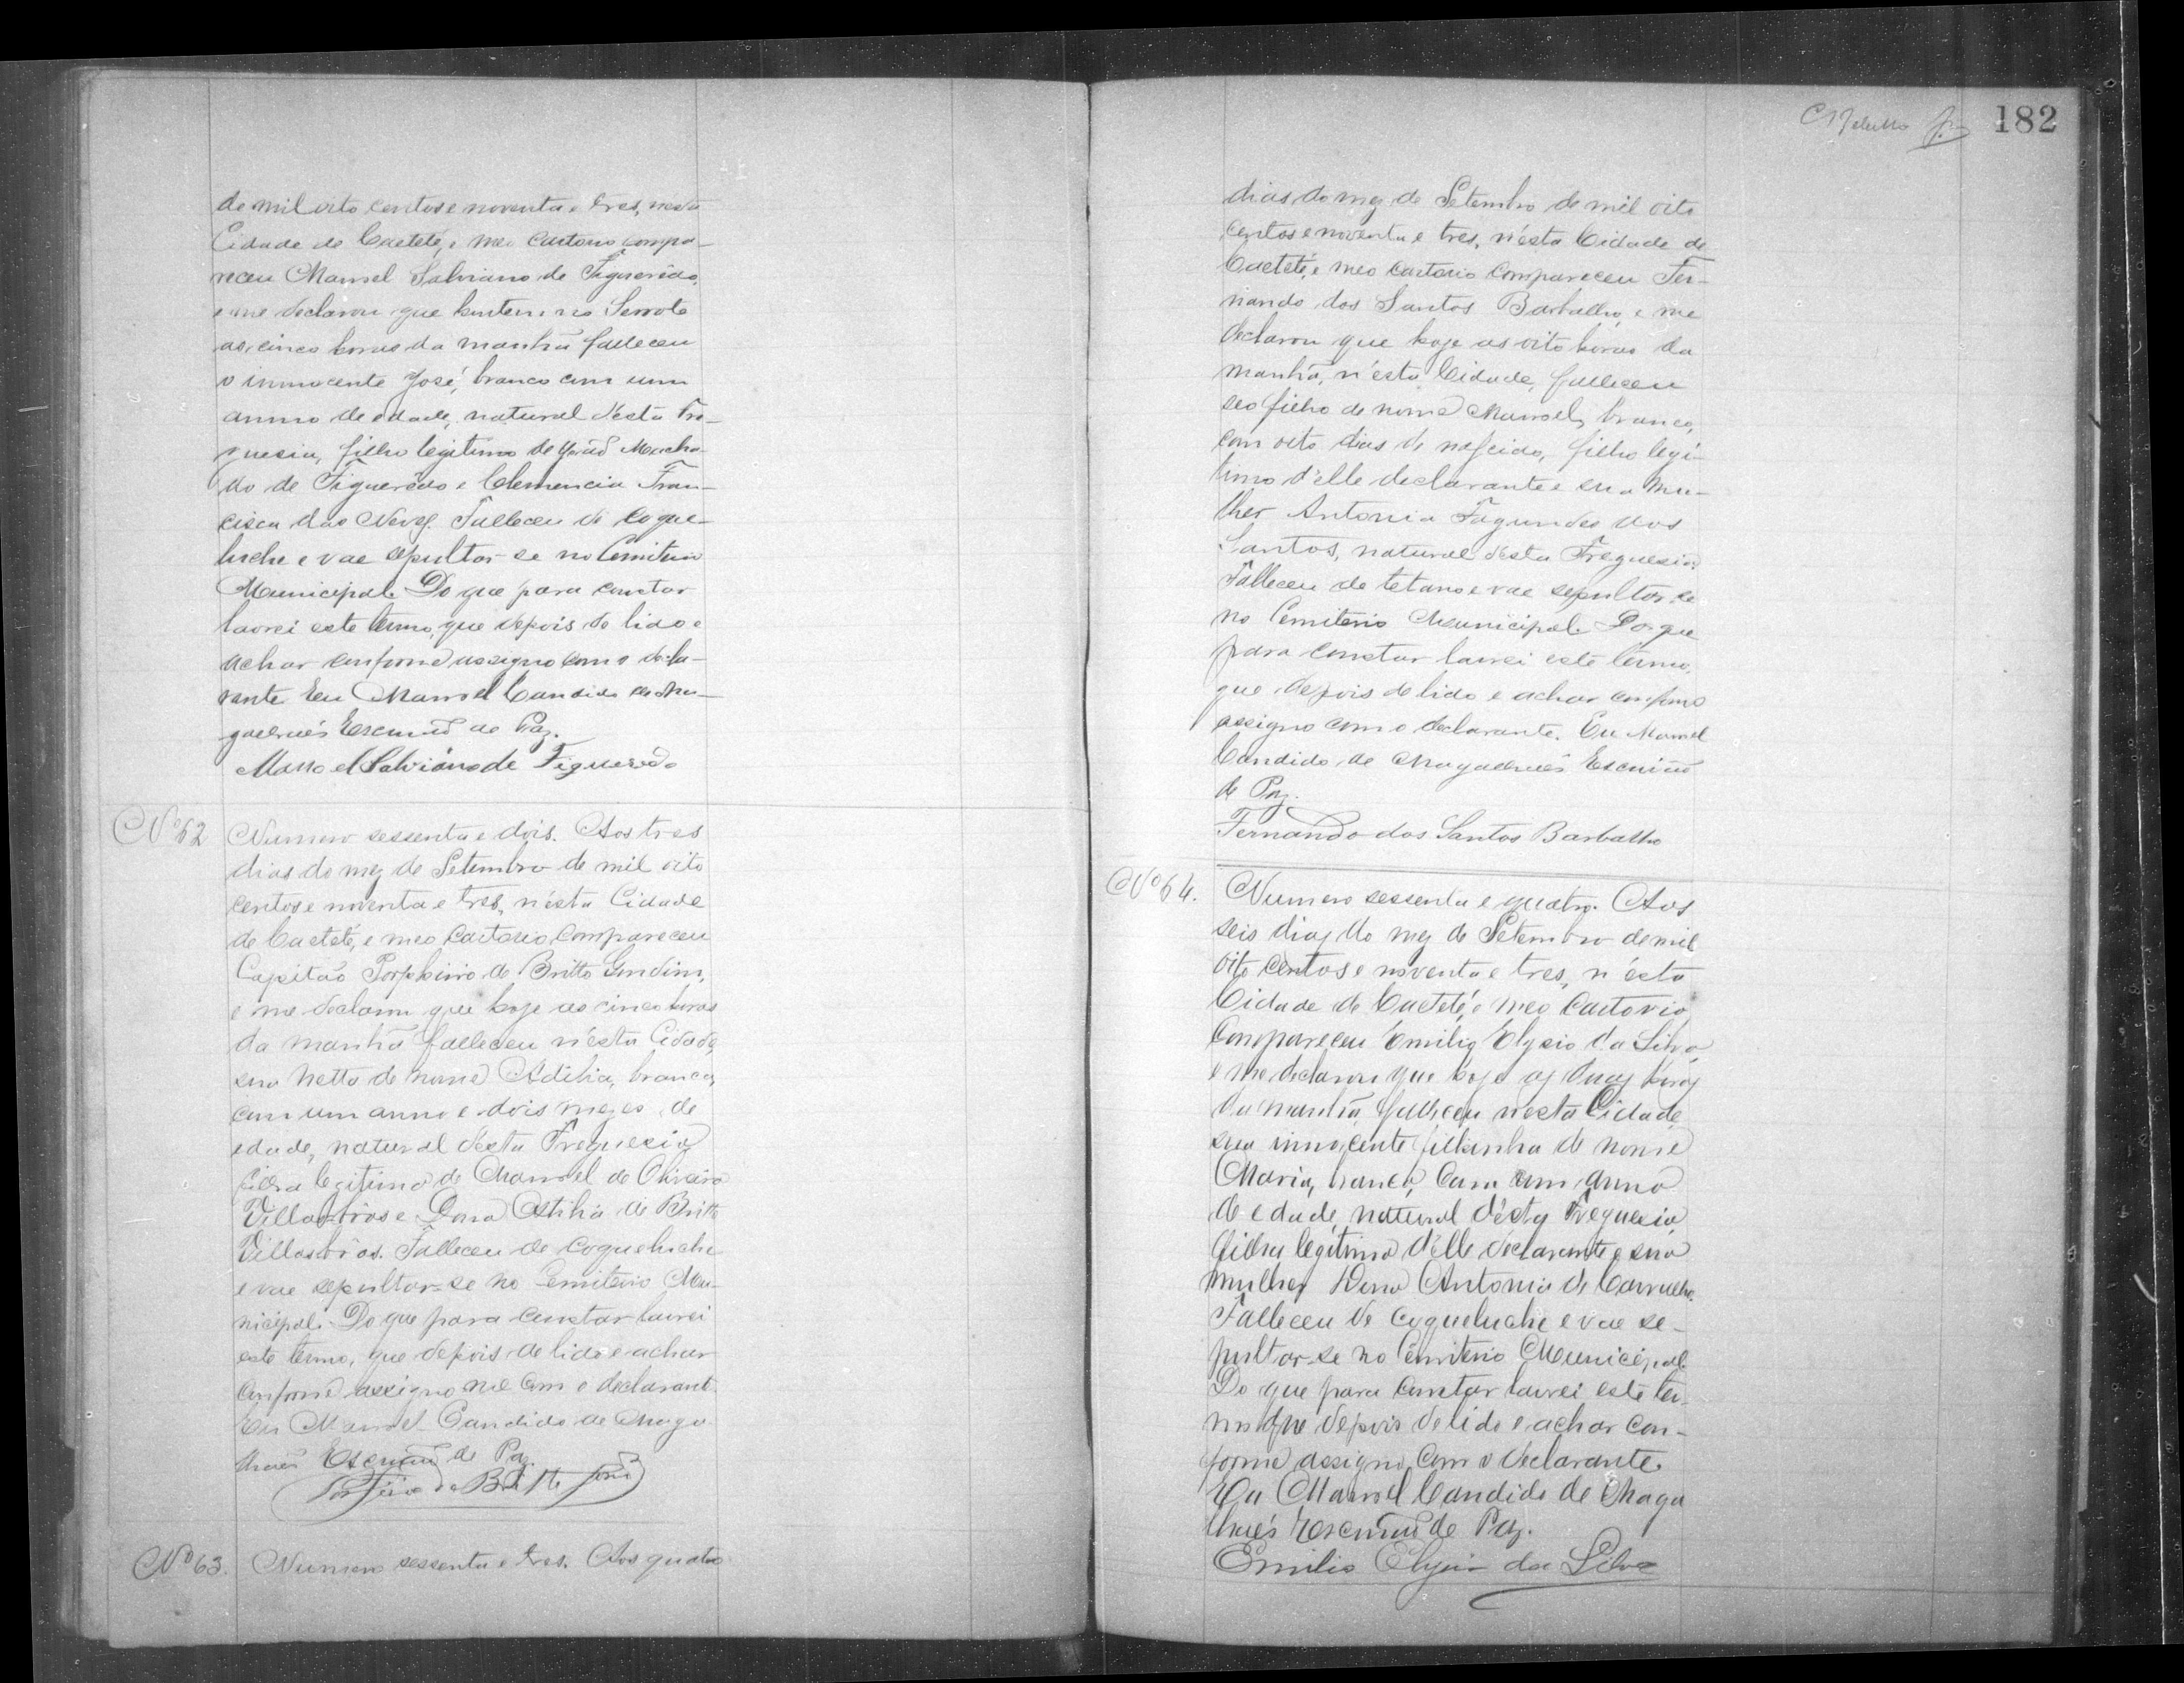 de mil oito centos e noventa e tres, nesta
Cidade de Caeteté, e meo Cartorio compa-
receu Manoel Salviano de Figuerêdo,
e me declarou que hontem no Serrote
as cinco horas da manhã falleceu
o innocente José, branco com um
anno de edade, natural desta Fre-
guesia, filho legitimo de João Macha-
do de Figuerêdo e Clemencia Fran-
cisca das Neves. Falleceu de coque-
luche e vae sepultar-se no Cemiterio
Municipal. Do que para constar
lavrei este termo, que depois de lido e
achar conforme assigno com o decla-
rante. Eu Manoel Candido de Ma-
galhães Escrivão de Paz.
Manoel Salviano de Figueredo
Nº 62 Numero sessenta e dois. Aos tres
dias do mez de Setembro de mil oito
centos e noventa e tres, n'esta Cidade
de Caeteté, e meo Cartorio compareceu
Capitão Porphirio de Britto Gondim,
e me declarou que hoje as cinco horas
da manhã falleceu n'esta Cidade,
sua netta de nome Adilia, branca,
com um anno e dois mezes de
edade, natural desta Freguesia
filha legitima de Manoel de Oliveira
Villasbôas e Dona Atilia de Britto
Villasbôas. Falleceu de coqueluche
e vae sepultar-se no Cemiterio Mu-
nicipal. Do que para constar lavrei
este termo, que depois de lido e achar
conforme assigno me com o declarante
Eu Manoel Candido de Maga-
lhães Escrivão de Paz.
Porfirio de Britto Gond
Nº 63. Numero sessenta e tres. Aos quatro
182
dias do mez de Setembro de mil oito
centos e noventa e tres, n'ésta Cidade de
Caeteté, e meo Cartorio compareceu Fer-
nando dos Santos Barbalho, e me
declarou que hoje as oito horas da
manhã, n'ésta Cidade, falleceu
seo filho de nome Manoel, branco,
com oito dias de nascido, filho legi-
timo d'elle declarante e sua mu-
lher Antonia Fagundes dos
Santos, natural desta Freguesia.
Falleceu de tetano e vae sepultar-se
no Cemiterio Municipal. Do que
para constar lavrei este termo,
que depois de lido e achar conforme
assigno com o declarante. Eu Manoel
Candido de Magalhães Escrivão
de Paz.
Fernando dos Santos Barbalho
Nº 64. Numero sessenta e quatro. Aos
seis dias do mez de Setembro de mil
oito centos e noventa e tres, n'ésta
Cidade de Caeteté, e meo Cartorio
compareceu Emilio Elysio da Silva,
e me declarou que hoje as duas horas
da manhã, falleceu nesta Cidade,
sua innocente filhinha de nome
Maria, branca, com um anno
de edade, natural d'ésta Freguesia,
filha legitima d'elle declarante e sua
mulher Dona Antonia de Carvalho.
Falleceu de coqueluche e vae se-
pultar-se no Cemiterio Municipal.
Do que para constar lavrei este ter-
mo que depois de lido e achar con-
forme assigno com o declarante.
Eu Manoel Candido de Maga
lhães Escrivão de Paz.
Emilio Elysio da Silva